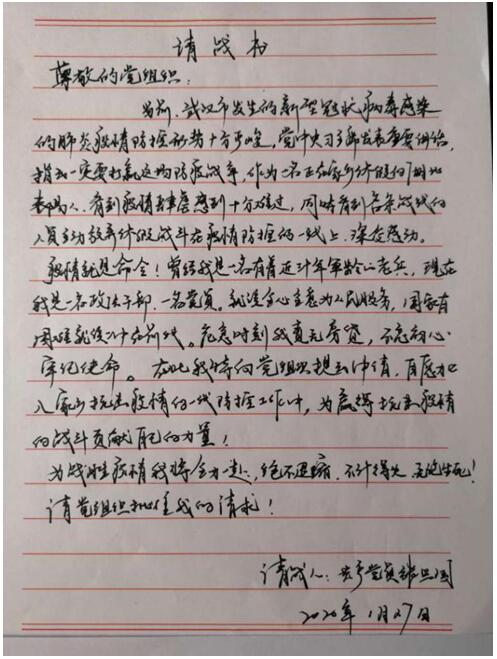 请战书
尊敬的党组织：
当前，武汉市发生的新型冠状病毒感染
的肺炎疫情防控形势十分严峻，党中央习
指出一定要打赢这场防疫战争，作为一名正在家乡休假的
看到疫情肆虐感到十分难过，同时看到各条战线的
人员主动放弃休假战斗在疫情防控的一线上，深受感动。
疫情就是命令！曾经我是一名有着近廿年军龄的老兵，现在
我是一名政法干部、一名党员。就该全心全意为人民服务，国家有
困难就该冲在前线。危急时刻我责无旁贷，不忘初心
牢记使命。在此我特向党组织提出申请，自愿加
入家乡抗击疫情的一线防控工作中，为赢得抗击疫情
的战斗贡献自己的力量！
为战胜疫情我将全力以赴，绝不退缩，不计得失，无论生死！
请党组织批准我的请求！
请战人：共产党员
2020年1月27日